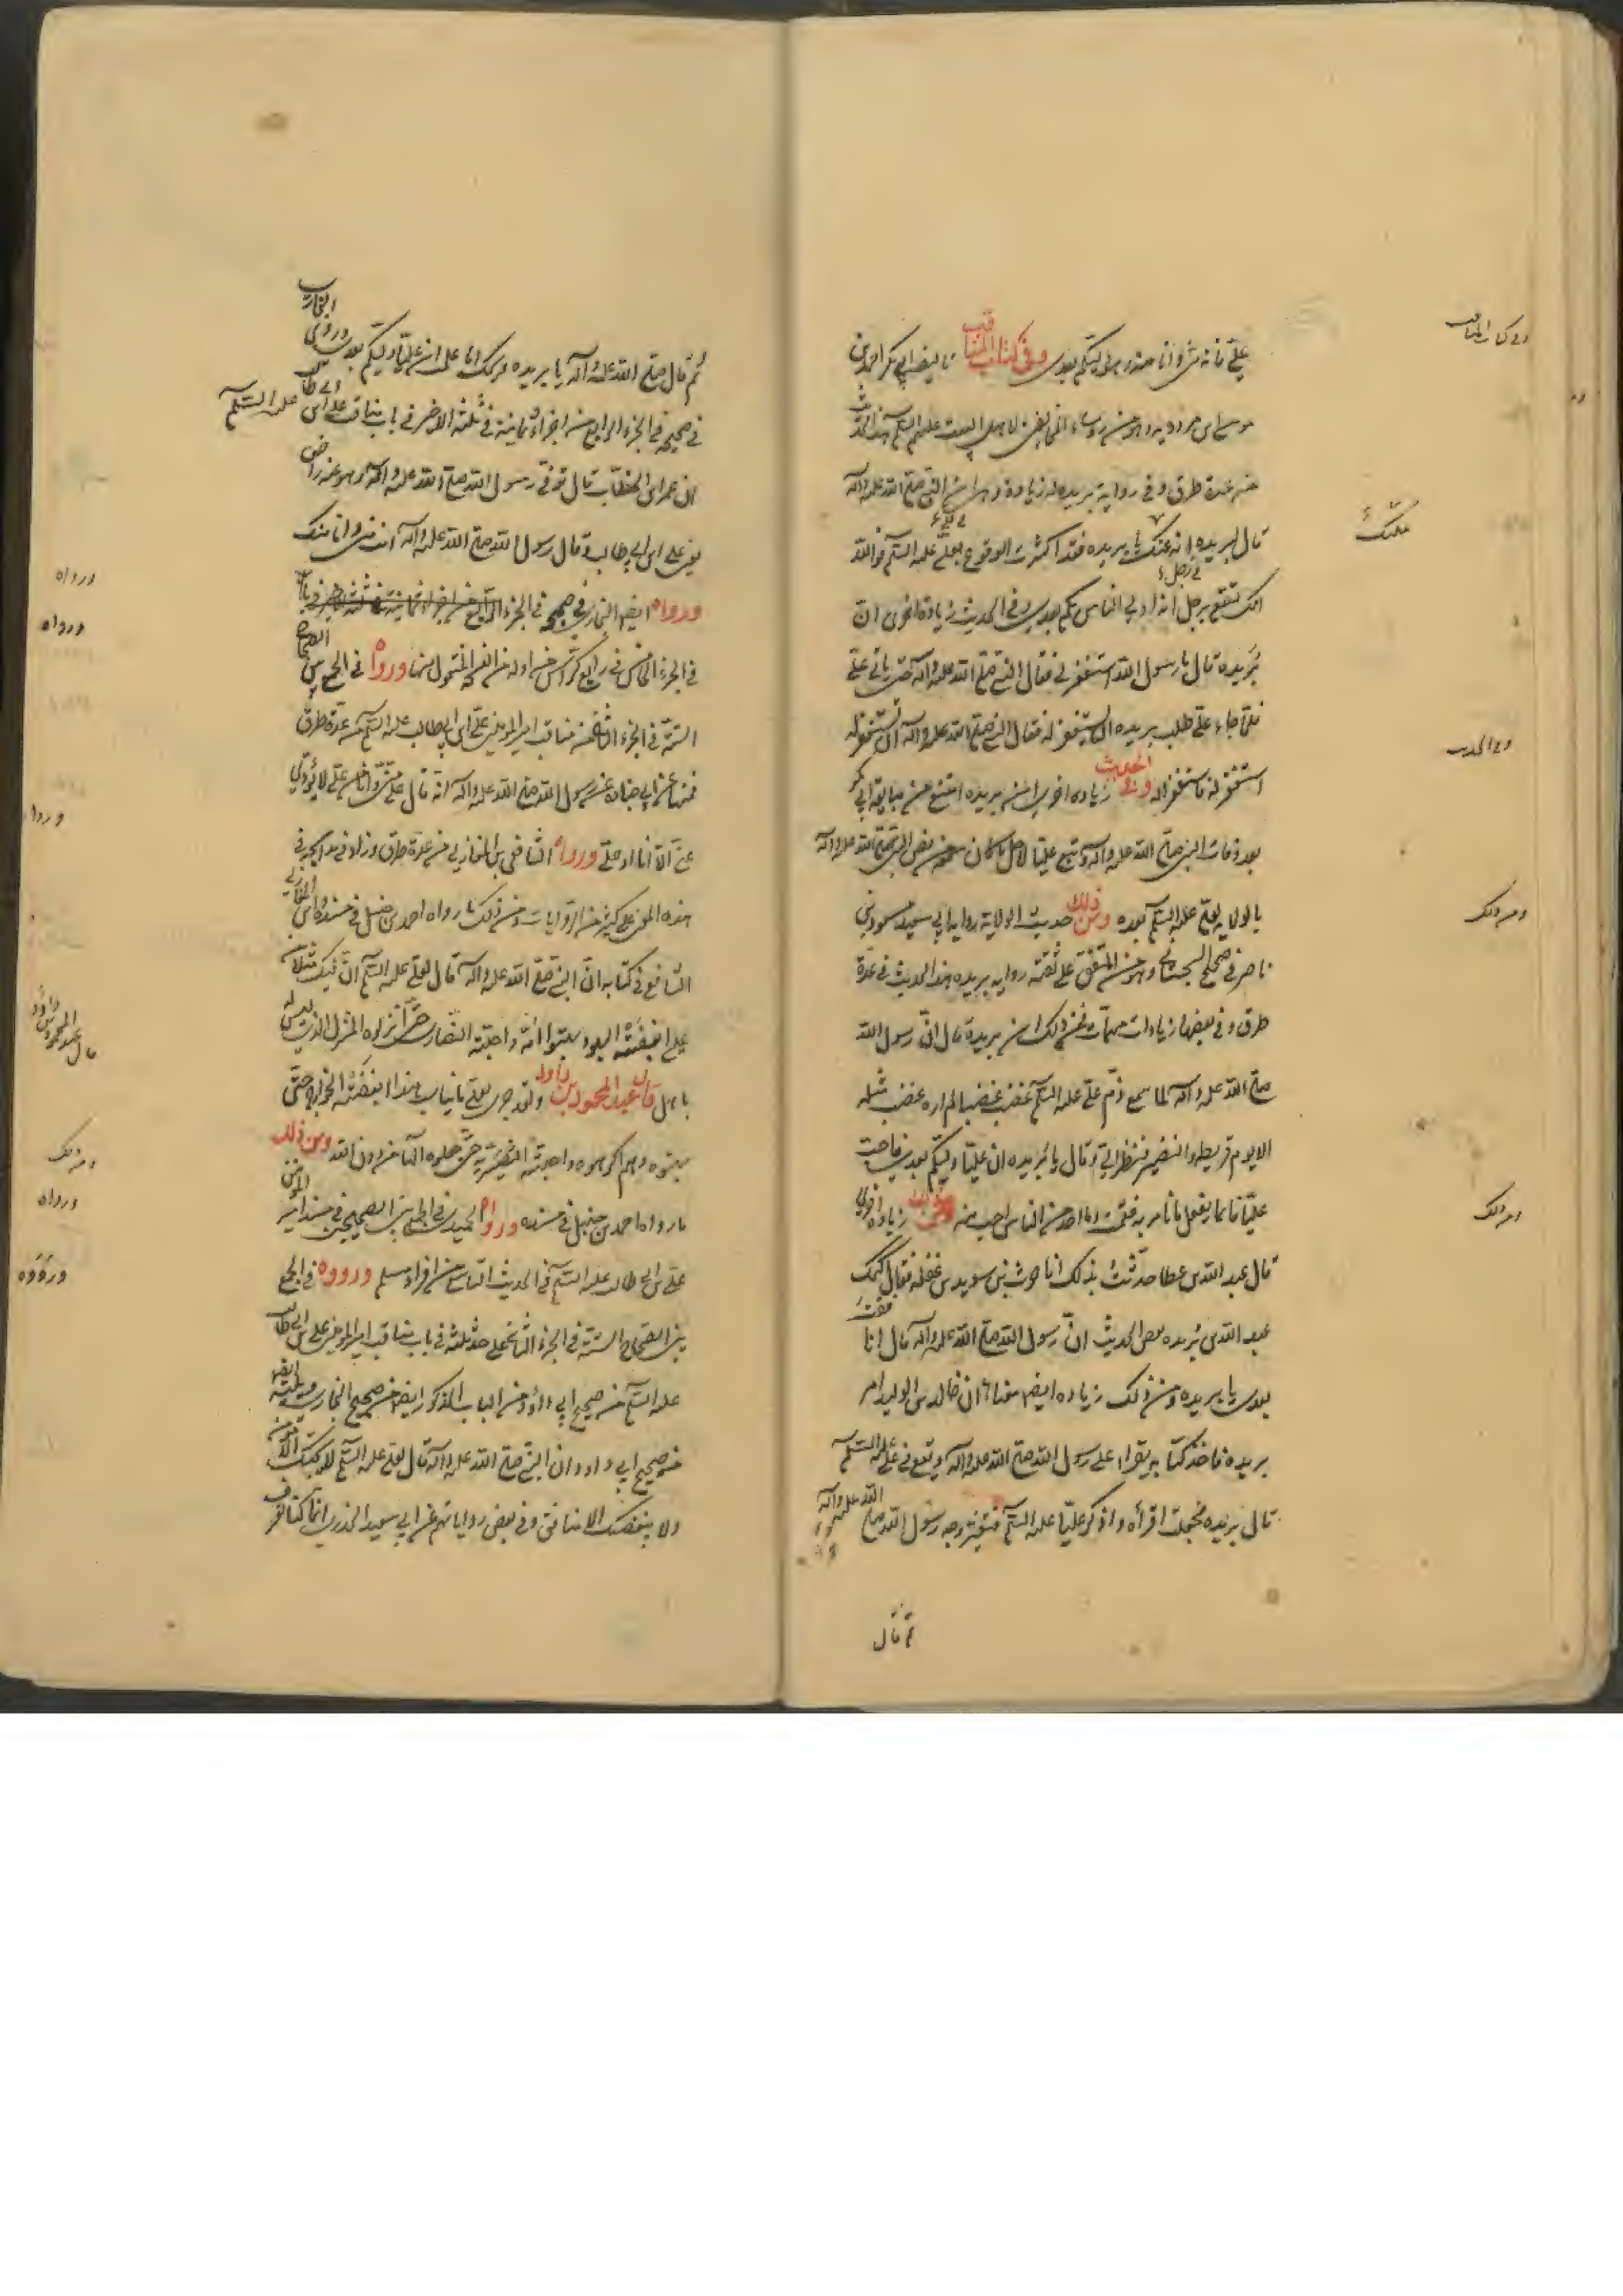 علي فانه مني وانا منه وهو وليكم بعدي وفي كتاب المناقب تاليف ابي بكر احمد بن
موسى ابن مردويه وهو من رؤساء المخالفين لاهل البيت عليهم السلم هذا الحديث
من عدة طرق وفي رواية بريده له زيادة وهي ان النبي صلى الله عليه وآله
قال لبريده إنه عنك يا بريده فقد اكثرت الوقوع بعلي عليه السلم فوالله
انك لتقع برجل انه اولى الناس بكم بعدي وفي الحديث زيادة اخرى ان
بُريده قال يا رسول الله استغفر لي فقال النبي صلى الله عليه وآله حتى ياتي علي
فلما جاء علي طلب بريده ان يستغفر له فقال النبي صلى الله عليه وآله ان تستغفر له
استغفر له فاستغفر له وفي الحديث زيادة اخرى ان بريده امتنع من مبايعة ابي بكر
بعد وفات النبي صلى الله عليه وآله وتبع عليا لاجل ما كان من نص النبي صلى الله عليه وآله
بالولاية لعلي عليه السلم بعده ومن ذلك حديث الولاية رواية ابي سعيد مسعود بن
ناصر في صحيح السجستاني وهو من المتفق على ثقته رواية بريده هذا الحديث في عدة
طرق وفي بعضها زيادات مهمات فمن ذلك ان بريدة قال ان رسول الله
صلى الله عليه وآله لما سمع ذم علي عليه السلم غضب غضبا لم اره غضب مثله
الا يوم قريظه والنضير فنظر الي وقال يا بُريده ان عليّا وليّكم بعدي فاحب
عليّا فانما يفعل ما يامر به فقمت وما احد من الناس احب الي منه ومن ذلك زيادة اخرى
قال عبد الله بن عطا حدّثت بذلك ابا حرث بن سويد بن غفله فقال كتمك
عبد الله بن بُريده بعض الحديث ان رسول الله صلى الله عليه وآله قال انافقت
بعدي يا بريده ومن ذلك زيادة ايضا معناها ان خالد بن الوليد امر
بريده فاخذ كتابه يقراء على رسول الله صلى الله عليه وآله ويقع في علي عليه السلم
قال بريده فجعلت اقرأه واذكر عليّا عليه السلم فتغير وجه رسول الله صلى الله عليه وآله
ثم قال
وفي كتاب المناقب
وفي الحديث
ومن ذلك
ومن ذلك
ثم قال صلى الله عليه وآله يا بريده ويحك اما علمت ان عليّا وليكم بعدي وروى البخاري
في صحيحه في الجزء الرابع من اجزاء ثمانية في ثلثه الاخير في باب مناقب علي ابن ابي طالب عليه السلم
ان عمر ابن الخطاب قال توفي رسول الله صلى الله عليه وآله وهو عنه راض
يعني علي ابن ابي طالب وقال رسول الله صلى الله عليه وآله انت مني وانا منك
ورواه ايضا البخاري في صحيحه في الجزء الرابع من اجزاء ثمانية في ثلثه الاخير في باب
في الجزء الخامس في رابع كراس من اوله من النسخة المنقول منها ورواه في الجمع بين الصحاح
الستة في الجزء الثالث من مناقب امير المؤمنين علي ابن ابي طالب عليه السلم من عدة طرق
فمنها عن ابي جناده عن رسول الله صلى الله عليه وآله انه قال علي مني وانا من علي لا يؤدي
عني الا انا او علي ورواه الشافعي بن المغازلي من عدة طرق وزاد في مدايحه في
هذه المعنى على كثير من الروايات ومن ذلك ما رواه احمد بن حنبل في مسنده وابن المغازلي
الشافعي في كتابه ان النبي صلى الله عليه وآله قال لعلي عليه السلم ان فيك مثلا من
عيسى ابغضته اليهود بهتوا امه واحبته النصارى حتى انزلوه المنزل الذي ليس له
باهل قال عبد المحمود بن داود ولقد جرى لعلي ما نياسب هذا ابغضته الخوارج حتى
بهتوه وهم اكرهوه واحبته النصيرية حتى جعلوه الها من دون الله ومن ذلك
ما رواه احمد بن حنبل في مسنده ورواه الحميدي في الجمع بين الصحيحين في مسند امير المومنين
علي بن ابي طالب عليه السلم في الحديث التاسع من افراد مسلم ورووه في الجمع
بين الصحاح الستة في الجزء الثالث على حد ثلثه في باب مناقب امير المؤمنين علي بن ابي طالب
عليه السلم من صحيح ابي داؤد ومن الباب المذكور ايضا من صحيح البخاري
من صحيح ابي داود ان النبي صلى الله عليه وآله قال لعلي عليه السلم لا يحبك الا مؤمن
ولا يبغضك الا منافق وفي بعض رواياتهم عن ابي سعيد الخدري انما كنا نعرف
ورواه
ورواه
ورواه
قال عبد المحمود بن داود
ومن ذلك
ورواه
ورووه